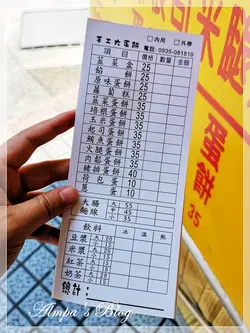 手工大蛋餅 □內用 □外帶
電話:0935-081810
項目 價格 數量 金額
韭菜盒 25
餡餅 25
原味蛋餅 25
蘿蔔糕 25
韭菜蛋餅 35
培根蛋餅 35
玉米蛋餅 35
起司蛋餅 35
鮪魚蛋餅 35
火腿蛋餅 35
肉鬆蛋餅 35
豬排蛋餅 40
荷包蛋 10
蔥蛋 10
大腸 大 55
麵線 小 45
飲料 冰 溫 熱
豆漿 大 小
米漿 大 小
紅茶 大 小
奶茶 大 小
總計:
蛋餅
35
Almpa's Blog